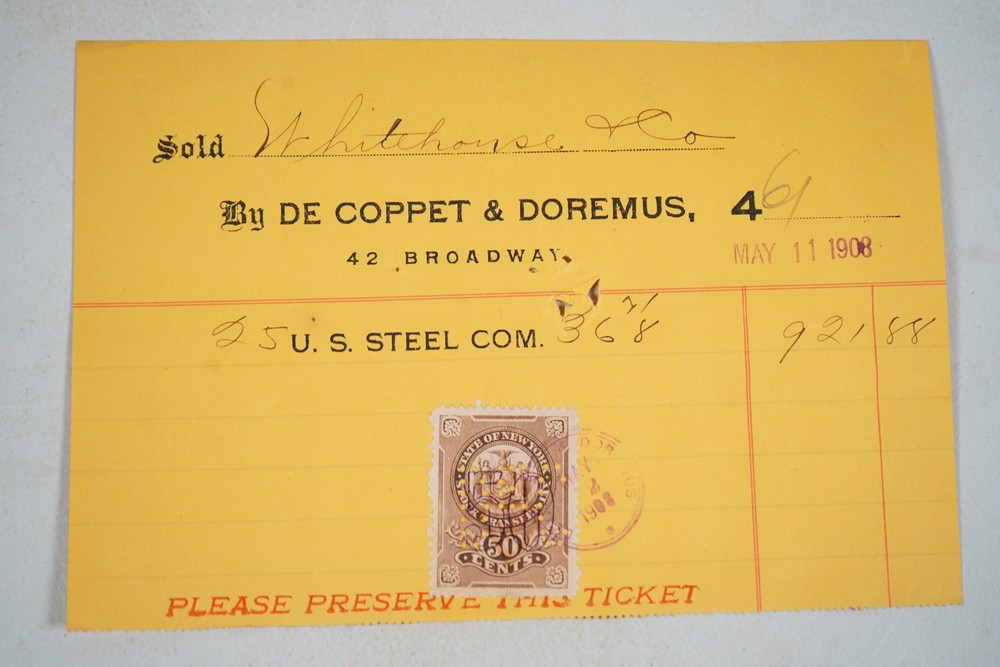 Sold Whitehouse & Co
By DE COPPET & DOREMUS, 461
42 BROADWAY.
MAY 11 1908
25 U. S. STEEL COM. 36 7/8 921 88
STATE OF NEW YORK
STOCK TRANSFER TAX
50
CENTS
1908
PLEASE PRESERVE THIS TICKET